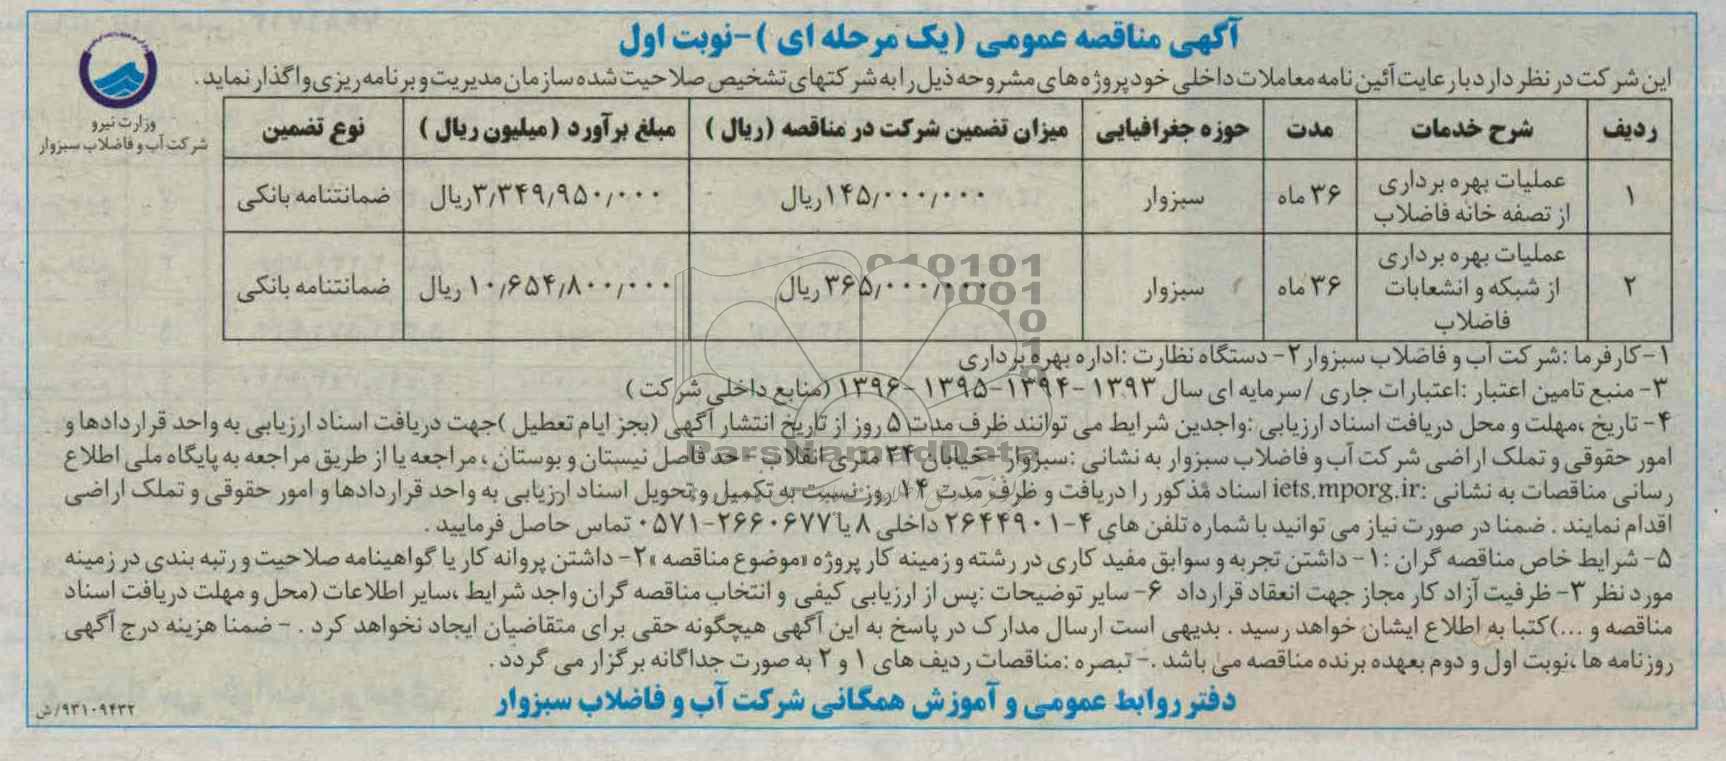 آگهی مناقصه عمومی (یک مرحله ای )-نوبت اول
وزارت نیرو
شرکت آب و فاضلاب سبزوار
این شرکت در نظر دارد با رعایت آئین نامه معاملات داخلی خود پروژه های مشروحه ذیل را به شرکتهای تشخیص صلاحیت شده سازمان مدیریت و برنامه ریزی واگذار نماید.
ردیف شرح خدمات مدت حوزه جغرافیایی میزان تضمین شرکت در مناقصه (ریال ) مبلغ برآورد (میلیون ریال ) نوع تضمین
۱ عملیات بهره برداری از تصفه خانه فاضلاب ۳۶ ماه سبزوار ۱۴۵/۰۰۰/۰۰۰ریال ۳/۳۴۹/۹۵۰/۰۰۰ریال ضمانتنامه بانکی
۲ عملیات بهره برداری از شبکه و انشعابات فاضلاب ۳۶ ماه سبزوار ۳۶۵/۰۰۰/۰۰۰ریال ۱۰/۶۵۴/۸۰۰/۰۰۰ ریال ضمانتنامه بانکی
۱-کارفرما :شرکت آب و فاضلاب سبزوار۲- دستگاه نظارت :اداره بهره برداری
۳- منبع تامین اعتبار :اعتبارات جاری /سرمایه ای سال ۱۳۹۳ -۱۳۹۴-۱۳۹۵-۱۳۹۶ (منابع داخلی شرکت )
۴- تاریخ ،مهلت و محل دریافت اسناد ارزیابی :واجدین شرایط می توانند ظرف مدت ۵ روز از تاریخ انتشار آگهی (بجز ایام تعطیل )جهت دریافت اسناد ارزیابی به واحد قراردادها و
امور حقوقی و تملک اراضی شرکت آب و فاضلاب سبزوار به نشانی :سبزوار -خیابان ۲۴ متری انقلاب -حد فاصل نیستان و بوستان ، مراجعه یا از طریق مراجعه به پایگاه ملی اطلاع
رسانی مناقصات به نشانی :iets.mporg.ir اسناد مذکور را دریافت و ظرف مدت ۱۴ روز نسبت به تکمیل و تحویل اسناد ارزیابی به واحد قراردادها و امور حقوقی و تملک اراضی
اقدام نمایند . ضمنا در صورت نیاز می توانید با شماره تلفن های ۴-۲۶۴۴۹۰۱ داخلی ۸ یا ۲۶۶۰۶۷۷-۰۵۷۱ تماس حاصل فرمایید .
۵- شرایط خاص مناقصه گران :۱- داشتن تجربه و سوابق مفید کاری در رشته و زمینه کار پروژه «موضوع مناقصه »۲- داشتن پروانه کار یا گواهینامه صلاحیت و رتبه بندی در زمینه
مورد نظر ۳- ظرفیت آزاد کار مجاز جهت انعقاد قرارداد ۶- سایر توضیحات :پس از ارزیابی کیفی و انتخاب مناقصه گران واجد شرایط ،سایر اطلاعات (محل و مهلت دریافت اسناد
مناقصه و ...)کتبا به اطلاع ایشان خواهد رسید . بدیهی است ارسال مدارک در پاسخ به این آگهی هیچگونه حقی برای متقاضیان ایجاد نخواهد کرد . - ضمنا هزینه درج آگهی
روزنامه ها ،نوبت اول و دوم بعهده برنده مناقصه می باشد .- تبصره :مناقصات ردیف های ۱ و ۲ به صورت جداگانه برگزار می گردد .
دفتر روابط عمومی و آموزش همگانی شرکت آب و فاضلاب سبزوار
۹۳۱۰۹۴۳۲/ش
ParsNamadData